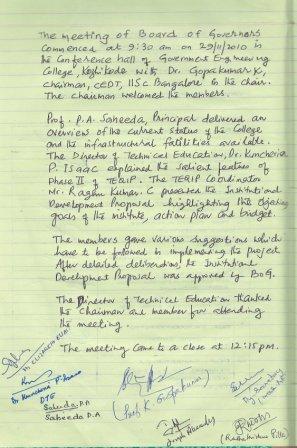 The meeting of Board of Governors
commenced at 9:30 am on 29/11/2010 in
the Conference hall of Government Engineering
College, Kozhikode with Dr. Gopakumar K,
Chairman, CEDT, IISc Bangalore in the chair.
The Chairman welcomed the members.
Prof. P.A. Saheeda, Principal delivered an
overview of the current status of the College
and the infrastructural facilities available.
The Director of Technical Education, Dr. Kuncheria
P. Isaac explained the salient features of
Phase II of TEQIP. The TEQIP Coordinator
Mr. Raghu Kumar. C presented the Institutional
Development Proposal highlighting the
goals of the institute, action plan and budget.
The members gave various suggestions which
have to be followed in implementing the project
After detailed deliberations, the Institutional
Development Proposal was approved by BoG.
The Director of Technical Education thanked
the Chairman and member for attending
the meeting.
The meeting came to a close at 12:15 pm.
Dr Kuncheria P. Isaac
DTE
Saheeda P.A
Saheeda P.A
(Prof K. Gopakumar)